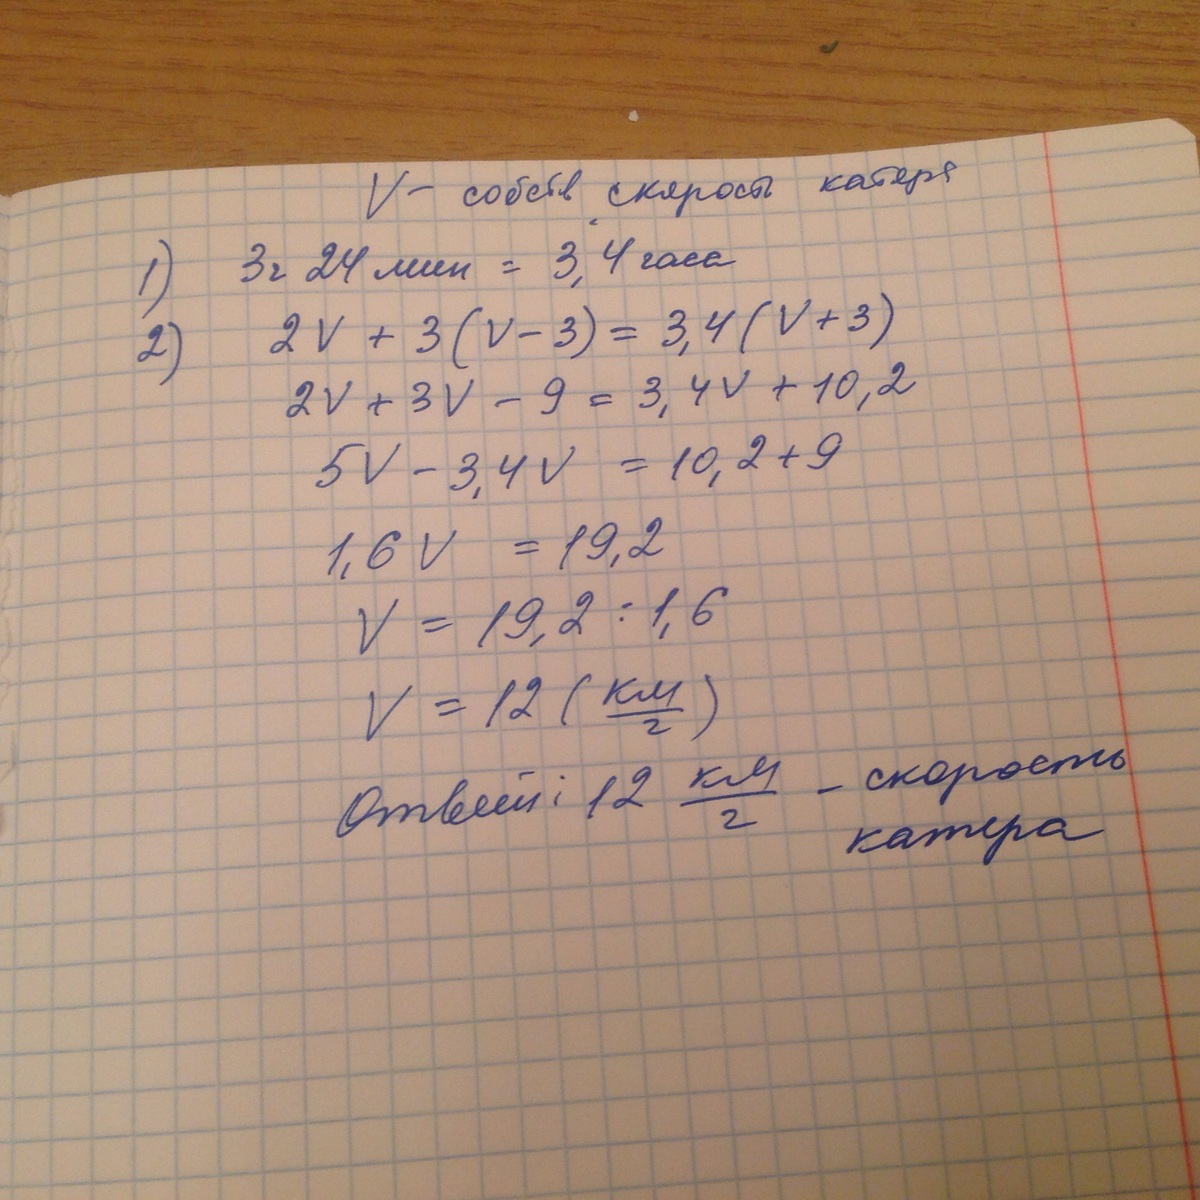 V - собств. скорость катера
1) 3ч 24 мин = 3,4 часа
2) 2V + 3(V-3) = 3,4(V+3)
2V + 3V - 9 = 3,4V + 10,2
5V - 3,4V = 10,2+9
1,6V = 19,2
V = 19,2 : 1,6
V = 12 (км/ч)
Ответ: 12 км/ч - скорость
катера